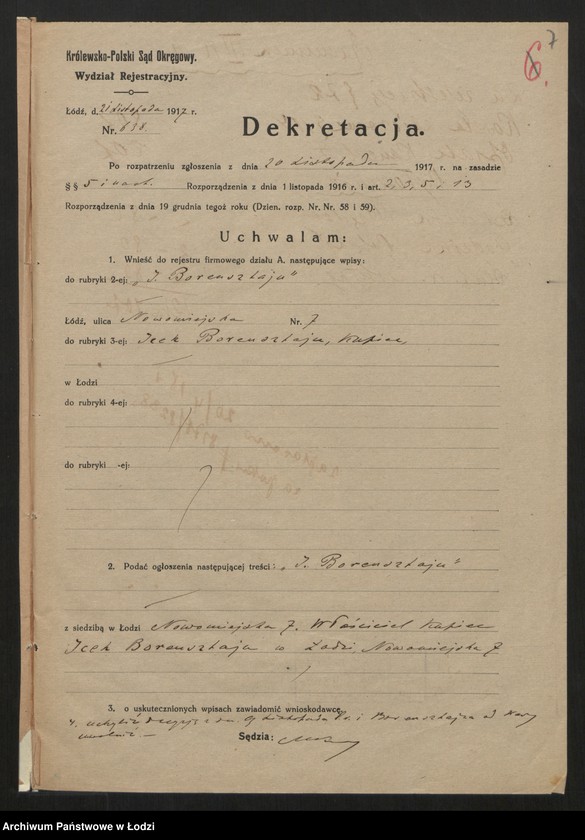 7
6.
Królewsko-Polski Sąd Okręgowy.
Wydział Rejestracyjny.
Łódź, d. 21 listopada 1917 r.
Nr. 638.
Dekretacja.
Po rozpatrzeniu zgłoszenia z dnia 20 listopada 1917 r. na zasadzie
§ § 5 i nast. Rozporządzenia z dnia 1 listopada 1916 r. i art. 2, 3, 5 i 13
Rozporządzenia z dnia 19 grudnia tegoż roku (Dzien. rozp. Nr. Nr. 58 i 59).
Uchwalam:
1. Wnieść do rejestru firmowego działu A. następujące wpisy:
do rubryki 2-ej: „I. Borensztajn"
Łódź, ulica Nowomiejska Nr. 7
do rubryki 3-ej: Icek Borensztajn, kupiec,
w Łodzi
do rubryki 4-ej:
do rubryki -ej:
2. Podać ogłoszenia następującej treści: „I. Borensztajn"
z siedzibą w Łodzi Nowomiejska 7. Właściciel kupiec
Icek Borensztajn w Łodzi, Nowomiejska 7
3. o uskutecznionych wpisach zawiadomić wnioskodawcę.
4. listopada i Borensztajna od kary
Sędzia:
Archiwum Państwowe w Łodzi